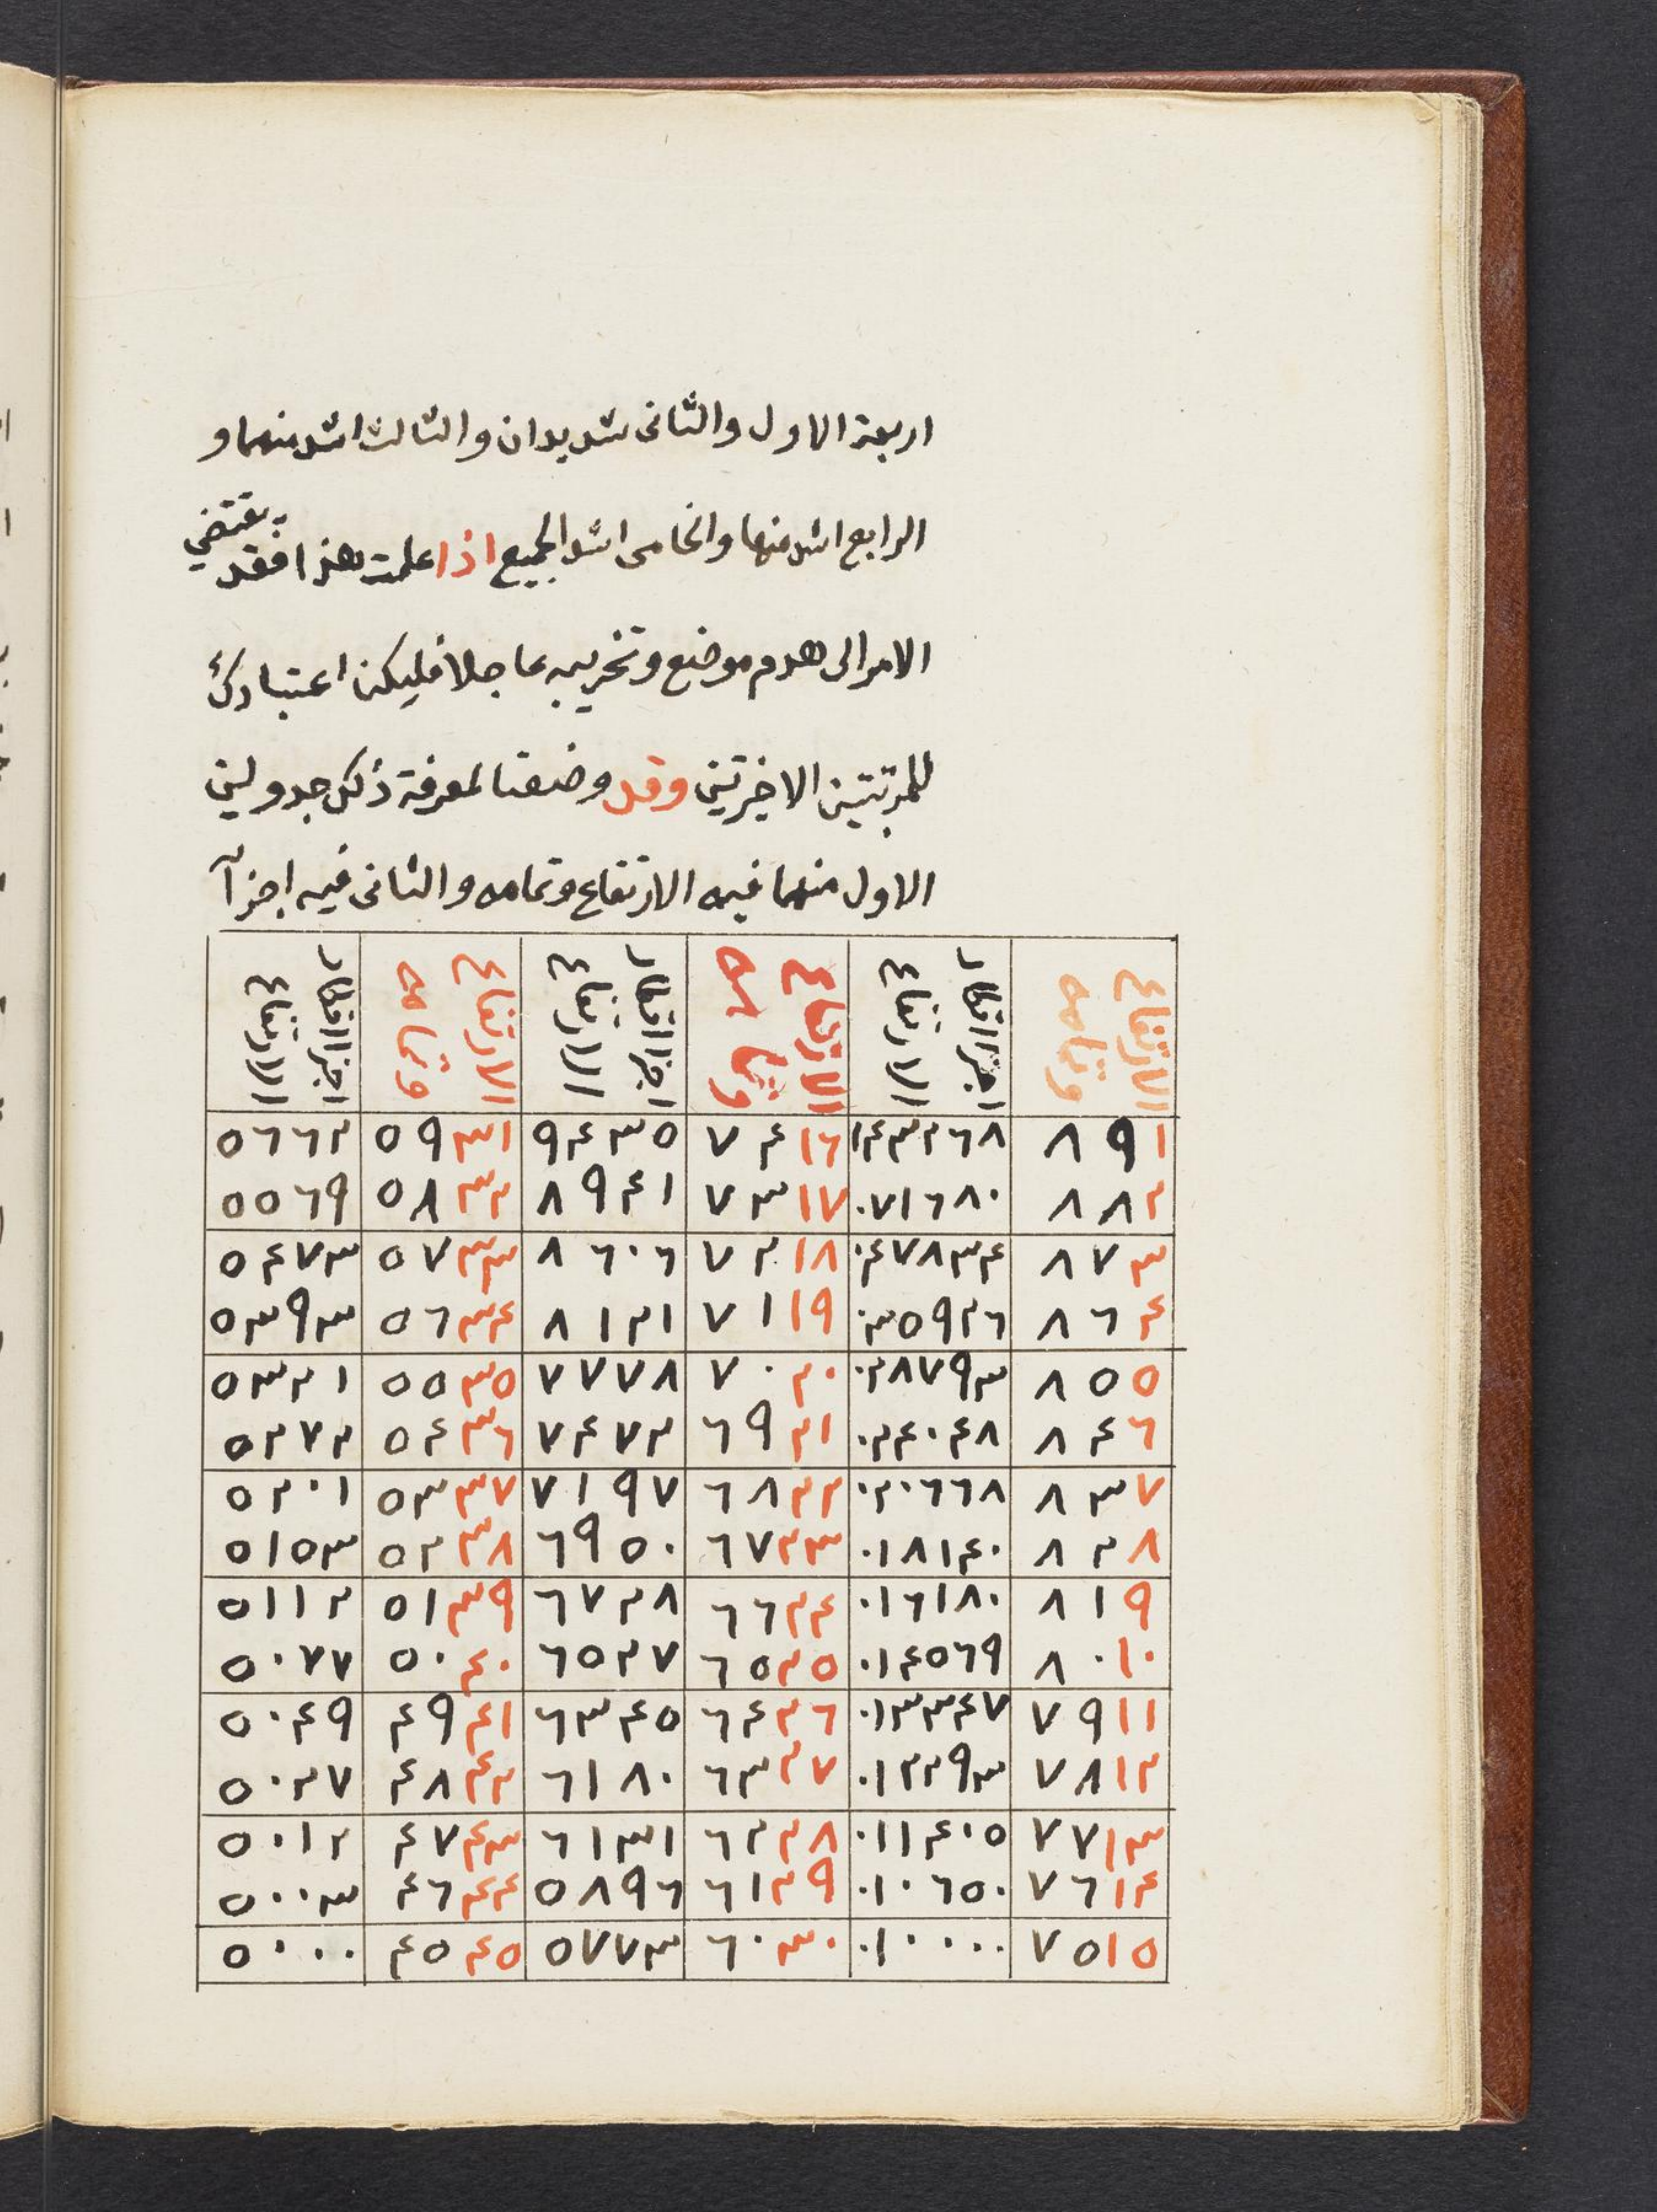 اربعة الاول والثانى شديدان والثالث اشد منهما و
الرابع اشد منها والخامس اشد الجميع اذا علمت هذا فقد يقتضي
الامر الى هدم موضع وتخريبه عاجلا فليكن اعتبارك
للمرتبتين الاخيرتين وقد وضعنا لمعرفة ذلك جدولين
الاول منهما فيه الارتفاع وتمامه والثانى فيه اجزآ
الارتفاع وتمامه اجزا اقطار الارتفاع الارتفاع وتمامه اجزا اقطار الارتفاع الارتفاع وتمامه اجزا اقطار الارتفاع
١ ٨٩ ١٤٣٢٦٨ ١٦ ٧٤ ٩٤٣٥ ٣١ ٥٩ ٥٦٦٢
٢ ٨٨ ٠٧١٦٨٠ ١٧ ٧٣ ٨٩٤١ ٣٢ ٥٨ ٥٥٦٩
٣ ٨٧ ٠٤٧٨٣٤ ١٨ ٧٢ ٨٦٠٦ ٣٣ ٥٧ ٥٤٧٣
٤ ٨٦ ٠٣٥٩٢٦ ١٩ ٧١ ٨١٢١ ٣٤ ٥٦ ٥٣٩٣
٥ ٨٥ ٠٢٨٧٩٣ ٢٠ ٧٠ ٧٧٧٨ ٣٥ ٥٥ ٥٣٢١
٦ ٨٤ ٠٢٤٠٤٨ ٢١ ٦٩ ٧٤٧٢ ٣٦ ٥٤ ٥٢٧٢
٧ ٨٣ ٠٢٠٦٦٨ ٢٢ ٦٨ ٧١٩٧ ٣٧ ٥٣ ٥٢٠١
٨ ٨٢ ٠١٨١٤٠ ٢٣ ٦٧ ٦٩٥٠ ٣٨ ٥٢ ٥١٥٣
٩ ٨١ ٠١٦١٨٠ ٢٤ ٦٦ ٦٧٢٨ ٣٩ ٥١ ٥١١٢
١٠ ٨٠ ٠١٤٥٦٩ ٢٥ ٦٥ ٦٥٢٧ ٤٠ ٥٠ ٥٠٧٧
١١ ٧٩ ٠١٣٣٤٧ ٢٦ ٦٤ ٦٣٤٥ ٤١ ٤٩ ٥٠٤٩
١٢ ٧٨ ٠١٢٢٩٣ ٢٧ ٦٣ ٦١٨٠ ٤٢ ٤٨ ٥٠٢٧
١٣ ٧٧ ٠١١٤٠٥ ٢٨ ٦٢ ٦١٣١ ٤٣ ٤٧ ٥٠١٢
١٤ ٧٦ ٠١٠٦٥٠ ٢٩ ٦١ ٥٨٩٦ ٤٤ ٤٦ ٥٠٠٣
١٥ ٧٥ ٠١٠٠٠٠ ٣٠ ٦٠ ٥٧٧٣ ٤٥ ٤٥ ٥٠٠٠